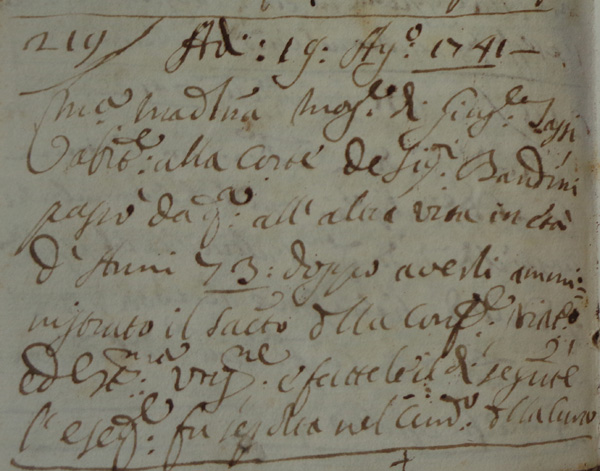 219 Adì: 19: Ag.º 1741
Mad.ª Mog.e di Gius.e Tassi
abit.e: alla Corte de Sig.ri Bandini
passò da q.ª all'altra vita in età
d'Anni 73: doppo averli ammi:
nistrato il Sacto della Conf.e: Viat.º
ed est.ma unz.ne e fattele il dì segu̅te
l'eseq.e: fu sepolta nel Cim.º della Cura